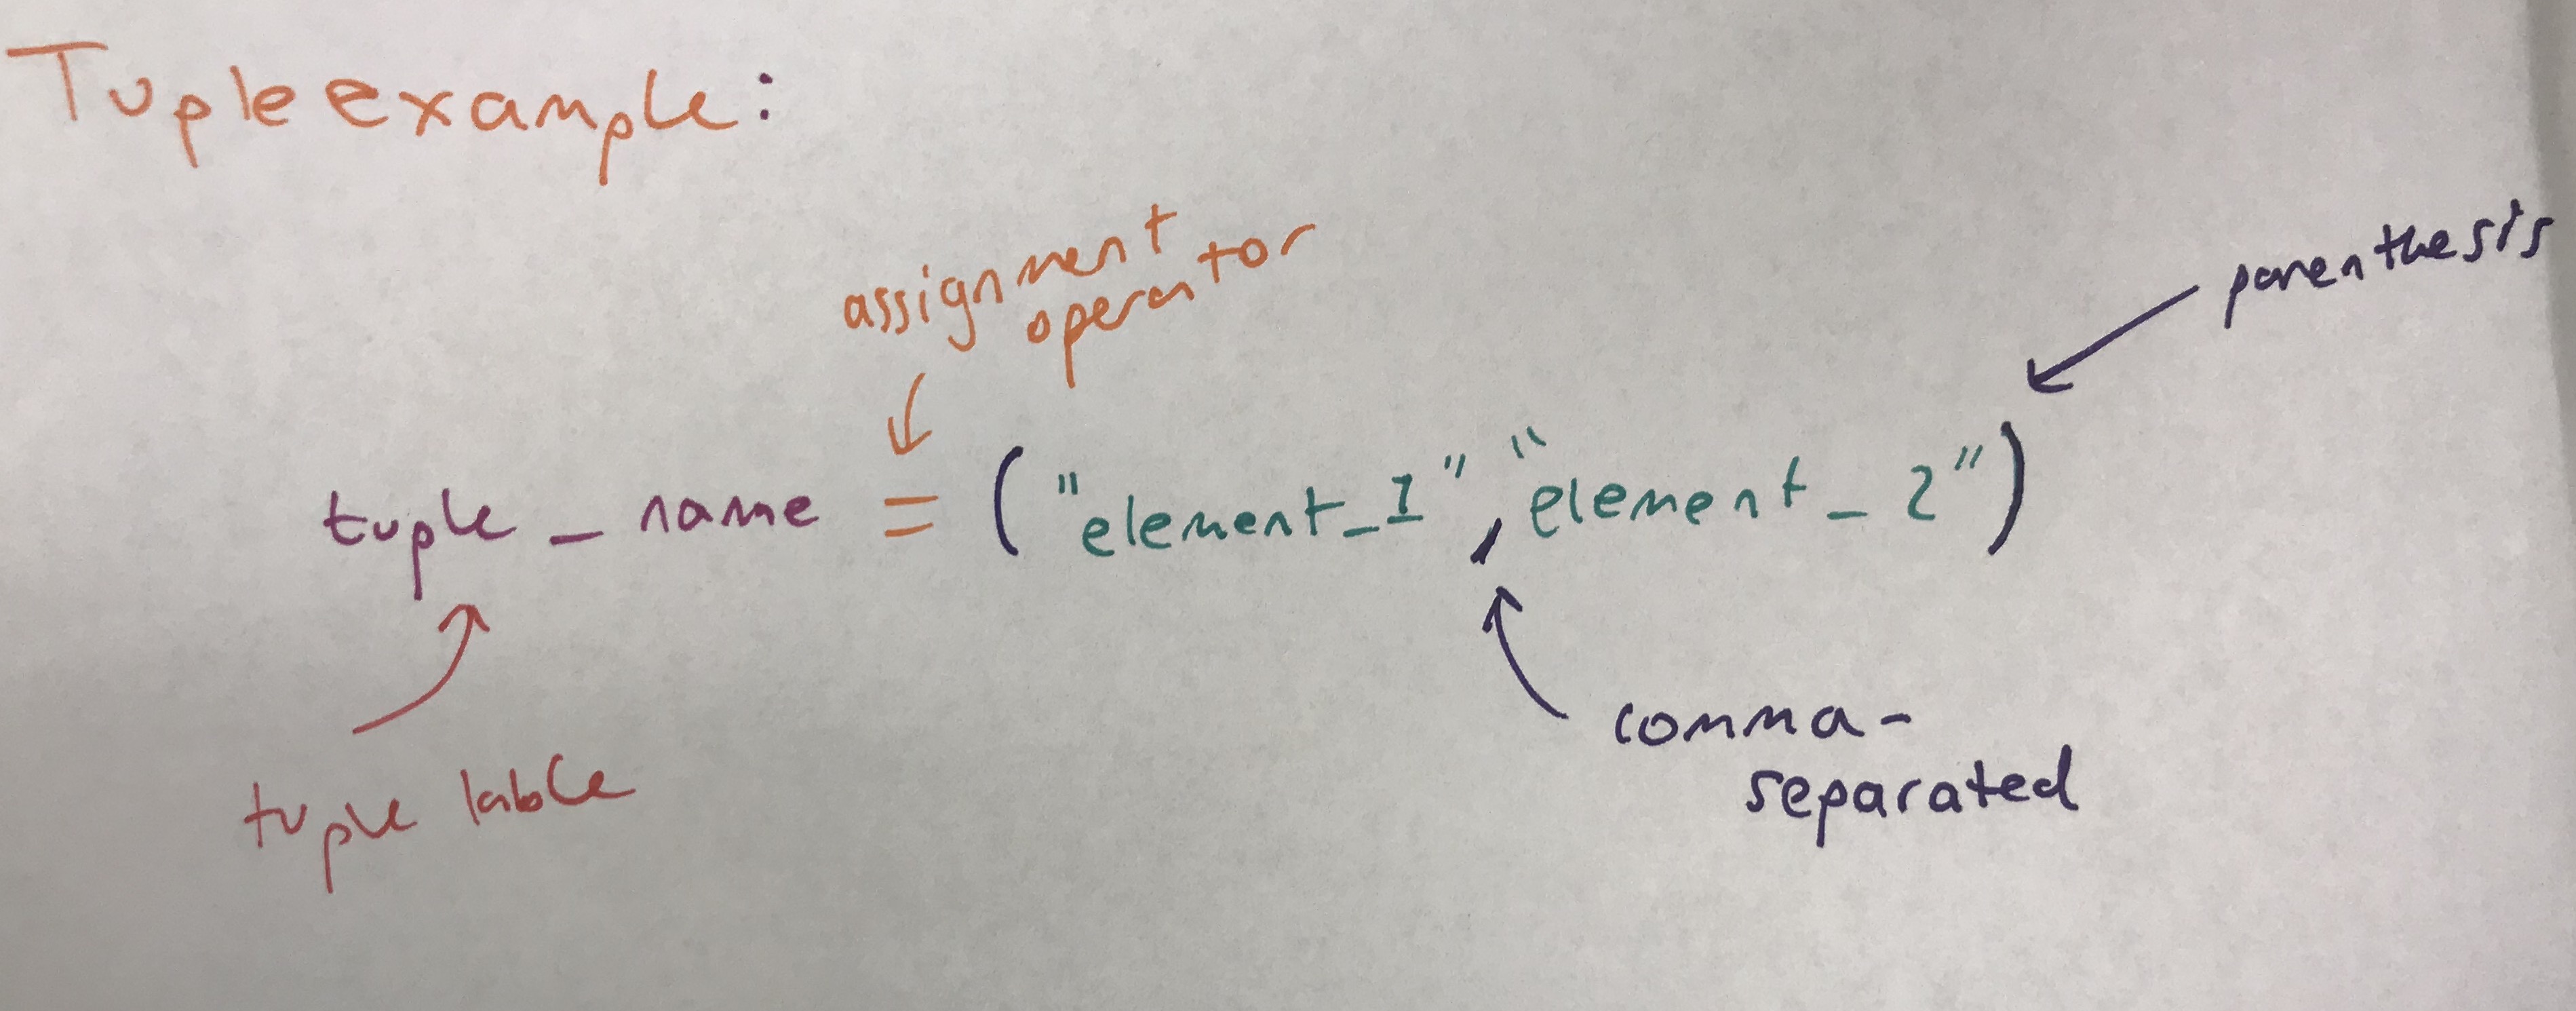 Tuple example:
assignment
operator
parenthesis
tuple_name = ("element_1", "element_2")
tuple lable
comma-
separated